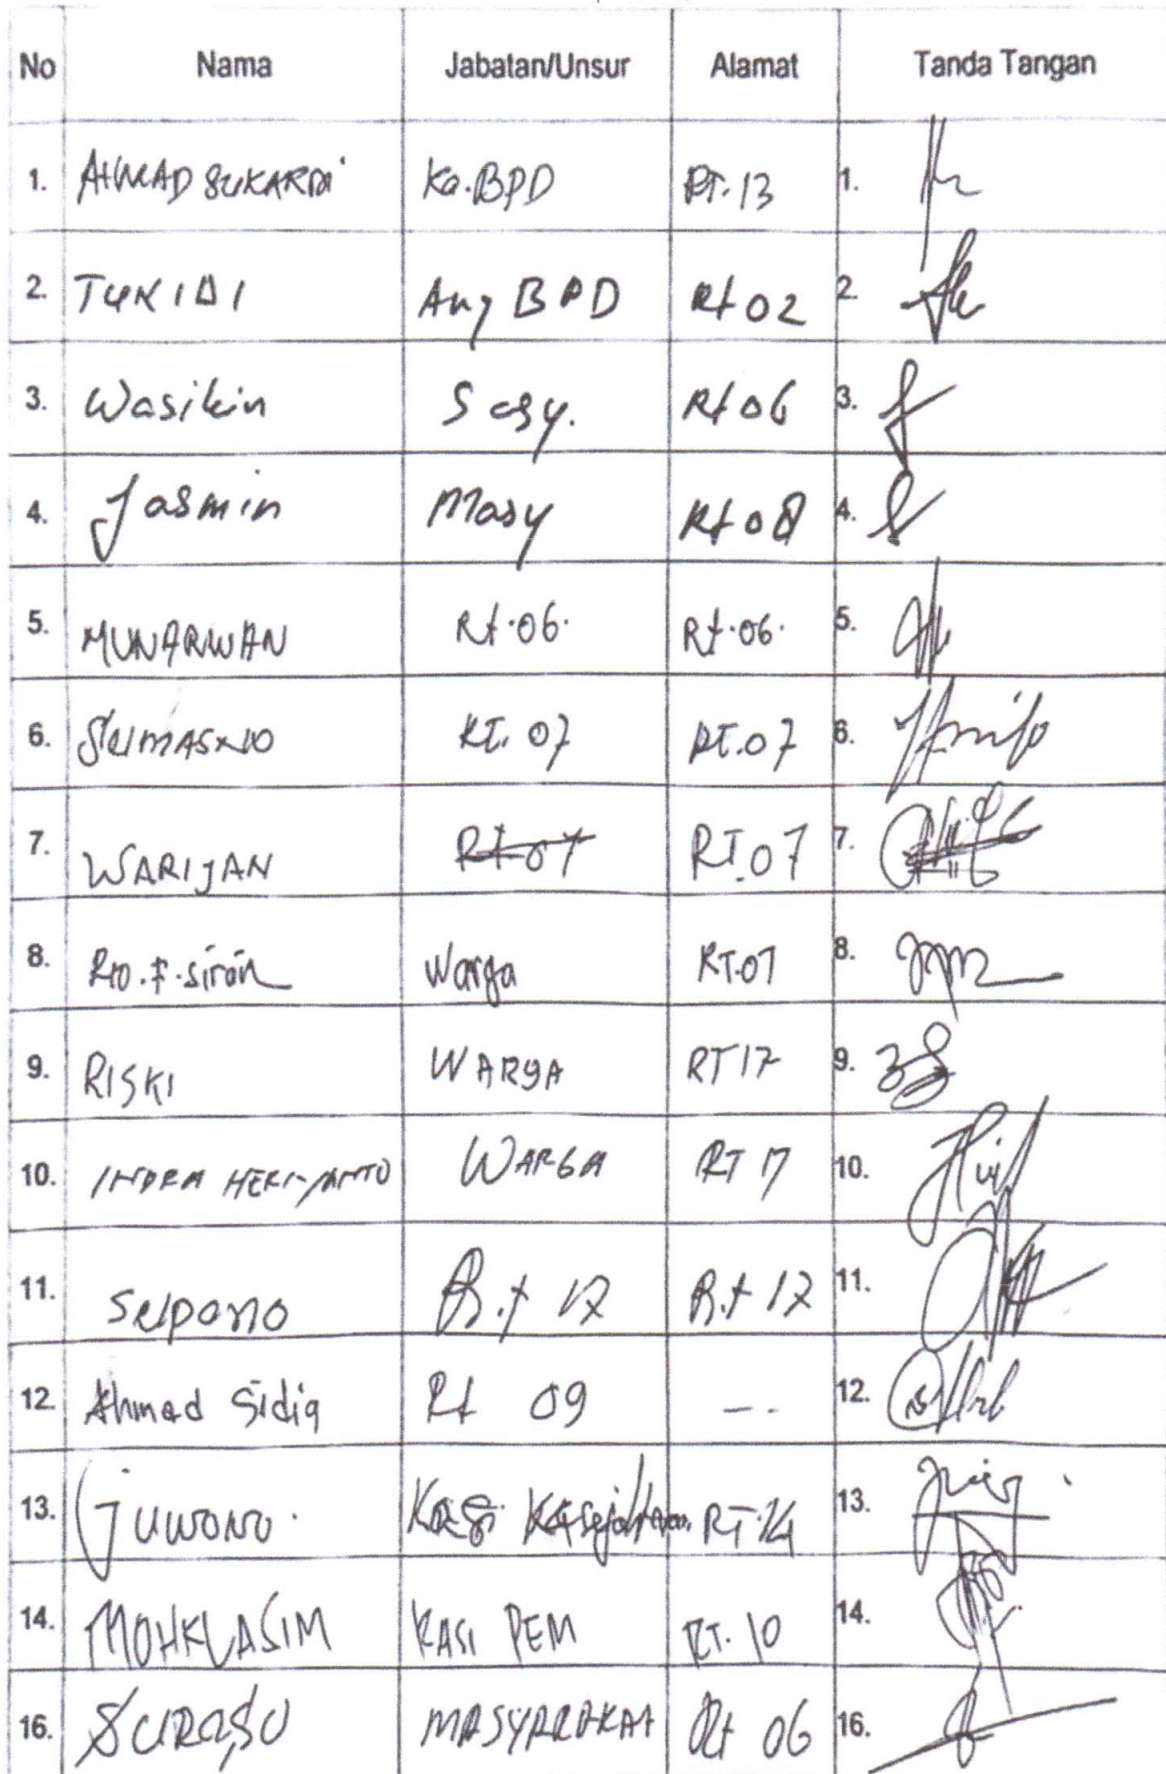 No Nama Jabatan/Unsur Alamat Tanda Tangan
1. AHMAD SUKARDI Ka.BPD RT.13 1.
2. TUKIDI Ang BPD Rt 02 2.
3. Wasikin Rt 06 3.
4. Jasmin Masy Rt 08 4.
5. MUNARWAN Rt.06. Rt.06. 5.
6. RT.07 RT.07 6.
7. WARIJAN Rt 07 RT.07 7.
8. Warga RT.07 8.
9. RISKI WARGA RT 17 9.
10. INDRA HERIYANTO WARGA RT 17 10.
11. R.t 17 R.t 17 11.
12. Ahmad Sidiq Rt 09 -- 12.
13. JUWONO. Kasi RT.14 13.
14. MOHKLASIM KASI PEM RT. 10 14.
16. Rt 06 16.